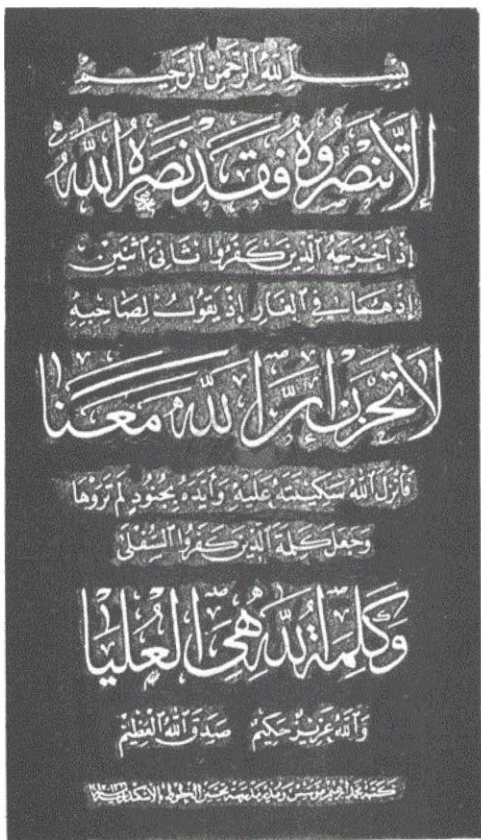 بِسْمِ اللَّهِ الرَّحْمَنِ الرَّحِيمِ
إِلَّا تَنْصُرُوهُ فَقَدْ نَصَرَهُ اللَّهُ
إِذْ أَخْرَجَهُ الَّذِينَ كَفَرُوا ثَانِيَ اثْنَيْنِ
إِذْ هُمَا فِي الْغَارِ إِذْ يَقُولُ لِصَاحِبِهِ
لَا تَحْزَنْ إِنَّ اللَّهَ مَعَنَا
فَأَنْزَلَ اللَّهُ سَكِينَتَهُ عَلَيْهِ وَأَيَّدَهُ بِجُنُودٍ لَمْ تَرَوْهَا
وَجَعَلَ كَلِمَةَ الَّذِينَ كَفَرُوا السُّفْلَى
وَكَلِمَةُ اللَّهِ هِيَ الْعُلْيَا
وَاللَّهُ عَزِيزٌ حَكِيمٌ صَدَقَ اللَّهُ الْعَظِيمُ
كتبه محمد إبراهيم مؤسس ومدير مدرسة تحسين الخطوط بالإسكندرية